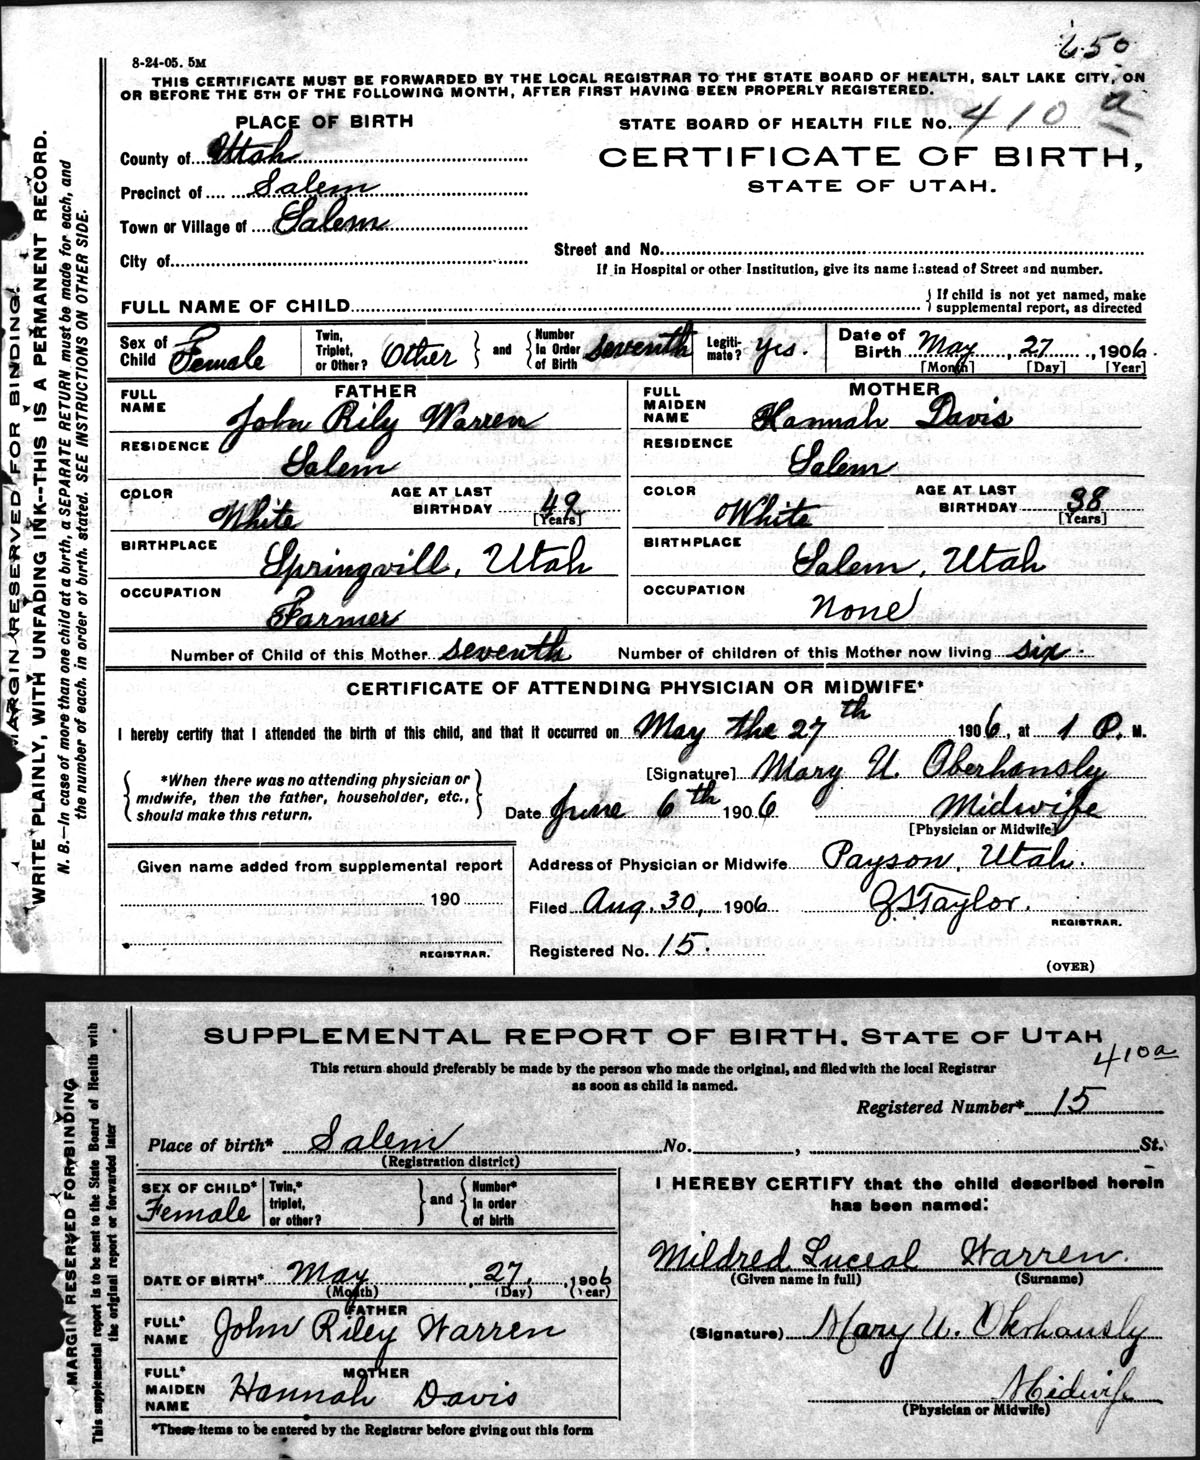 650
8-24-05. 5M
THIS CERTIFICATE MUST BE FORWARDED BY THE LOCAL REGISTRAR TO THE STATE BOARD OF HEALTH, SALT LAKE CITY, ON
OR BEFORE THE 5TH OF THE FOLLOWING MONTH, AFTER FIRST HAVING BEEN PROPERLY REGISTERED.
PLACE OF BIRTH
STATE BOARD OF HEALTH FILE No. 410 a
County of Utah
CERTIFICATE OF BIRTH,
STATE OF UTAH.
Precinct of Salem
Town or Village of Salem
City of
Street and No.
If in Hospital or other Institution, give its name instead of Street and number.
FULL NAME OF CHILD
{ If child is not yet named, make
supplemental report, as directed
Sex of Child Female
Twin, Triplet, or Other? Other } and { Number In Order of Birth seventh
Legiti-mate? yes.
Date of Birth May, 27, 1906.
[Month] [Day] [Year]
FATHER
FULL NAME John Rily Warren
RESIDENCE Salem
COLOR White AGE AT LAST BIRTHDAY 49
[Years]
BIRTHPLACE Springvill, Utah
OCCUPATION Farmer
MOTHER
FULL MAIDEN NAME Hannah Davis
RESIDENCE Salem
COLOR White AGE AT LAST BIRTHDAY 38
[Years]
BIRTHPLACE Salem, Utah
OCCUPATION None
Number of Child of this Mother seventh Number of children of this Mother now living six
CERTIFICATE OF ATTENDING PHYSICIAN OR MIDWIFE*
I hereby certify that I attended the birth of this child, and that it occurred on May the 27th 1906, at 1 P. M.
{ *When there was no attending physician or
midwife, then the father, householder, etc.,
should make this return. }
[Signature] Mary U. Oberhansly
Date June 6th 1906 Midwife
[Physician or Midwife]
Given name added from supplemental report
190
REGISTRAR.
Address of Physician or Midwife Payson, Utah.
Filed Aug. 30, 1906 Taylor.
REGISTRAR.
Registered No. 15.
(OVER)
MARGIN RESERVED FOR BINDING!
WRITE PLAINLY, WITH UNFADING INK--THIS IS A PERMANENT RECORD.
N. B.—In case of more than one child at a birth, a SEPARATE RETURN must be made for each, and
the number of each, in order of birth, stated. SEE INSTRUCTIONS ON OTHER SIDE.
SUPPLEMENTAL REPORT OF BIRTH, STATE OF UTAH
410a
This return should preferably be made by the person who made the original, and filed with the local Registrar
as soon as child is named.
Registered Number* 15
Place of birth* Salem No. , St.
(Registration district)
SEX OF CHILD* Female
Twin,* triplet, or other? } and { Number* in order of birth
DATE OF BIRTH* May, 27, 1906
(Month) (Day) (Year)
FATHER
FULL* NAME John Riley Warren
MOTHER
FULL* MAIDEN NAME Hannah Davis
*These items to be entered by the Registrar before giving out this form
I HEREBY CERTIFY that the child described herein
has been named:
Mildred Luceal Warren.
(Given name in full) (Surname)
(Signature) Mary U. Oberhansly
Midwife
(Physician or Midwife)
MARGIN RESERVED FOR BINDING
This supplemental report is to be sent to the State Board of Health with
the original report or forwarded later